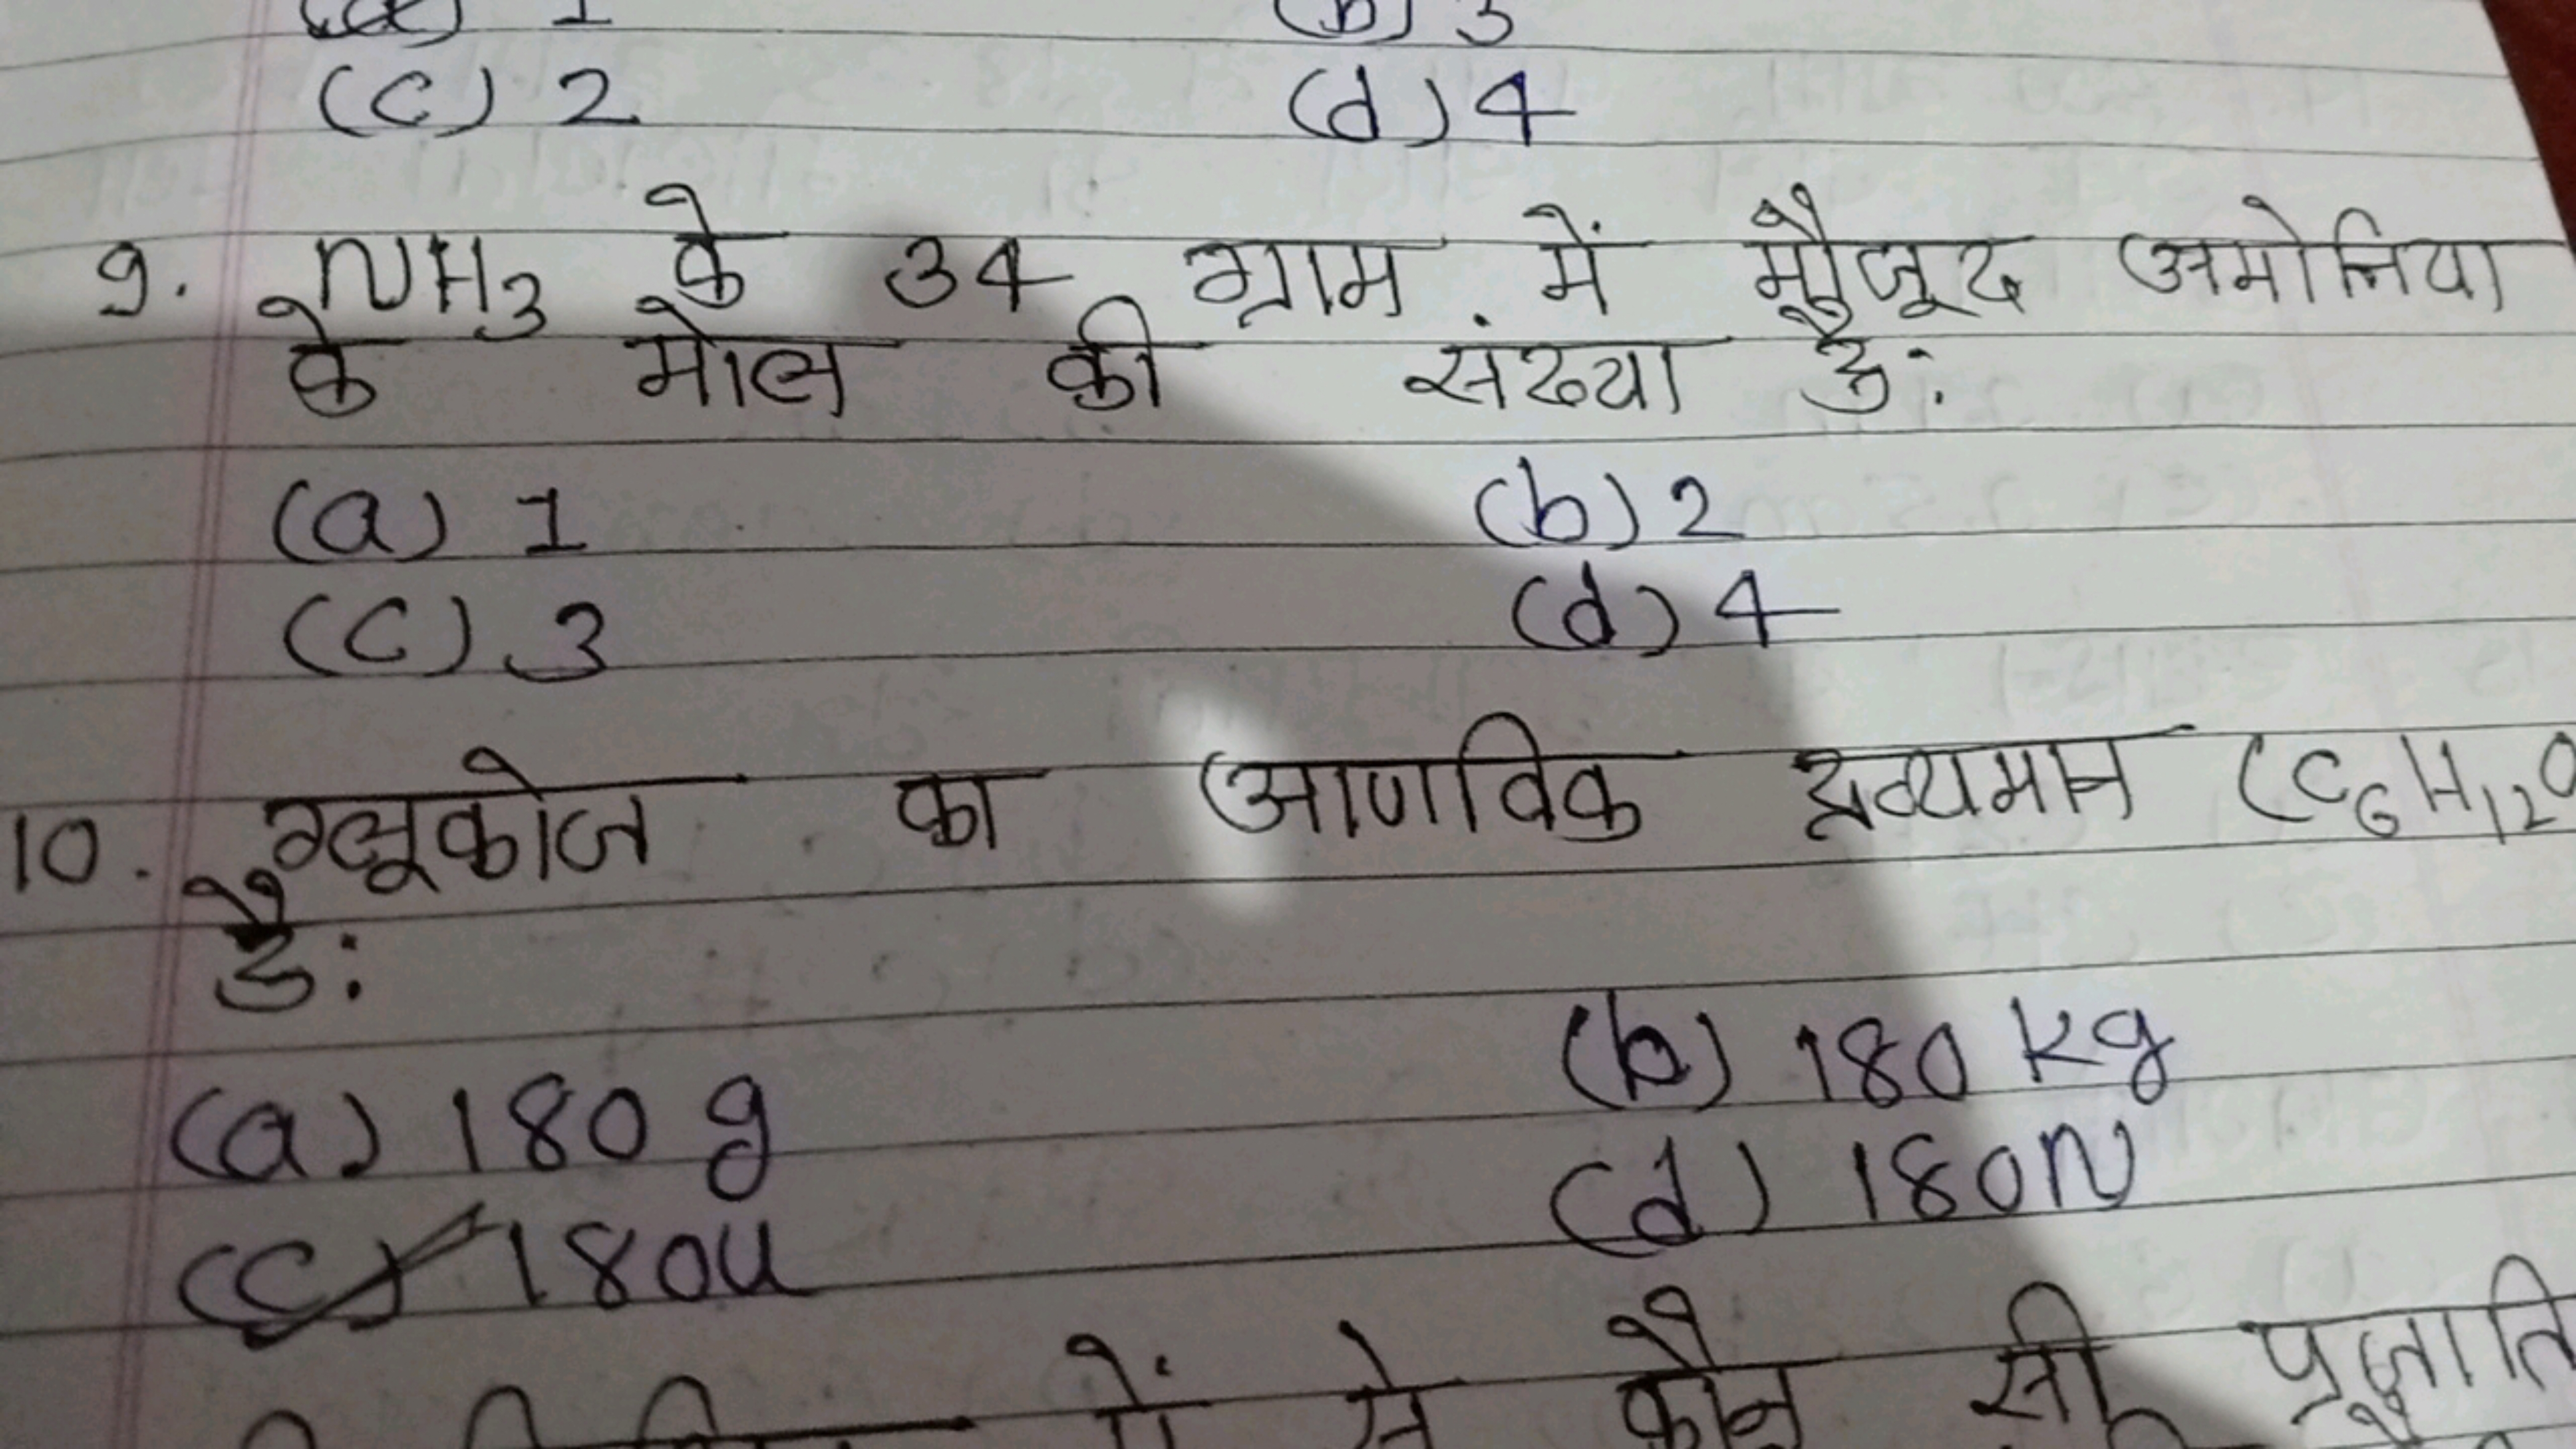 (a) 1 (b) 3
(c) 2 (d) 4
9. NH3 के 34 ग्राम में मौजूद अमोनिया
के मोल की संख्या है:
(a) 1 (b) 2
(c) 3 (d) 4
10. ग्लूकोज का आणविक द्रव्यमान (C6H12O
है:
(a) 180 g (b) 180 kg
(c) 180u (d) 180N
में से कौन सी प्रजाति